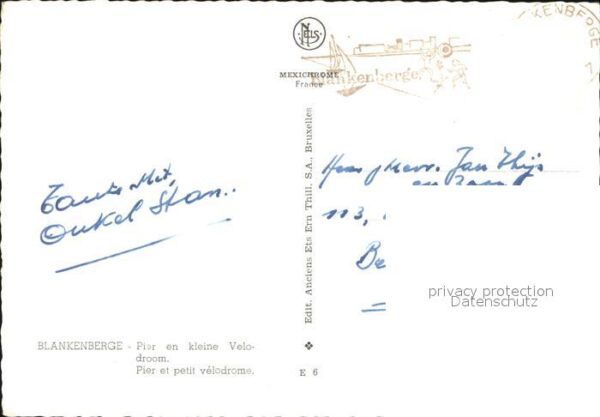 NELS
MEXICHROME
France
Blankenberge
KENBERGE
Tante Mit,
Onkel Stan..
Heer, Mevr. Jan Thijs
en zoon
113,
Be
privacy protection
Datenschutz
Edit. Anciens Ets Ern Thill, S.A., Bruxelles
BLANKENBERGE - Pier en kleine Velo-
droom.
Pier et petit vélodrome.
E 6